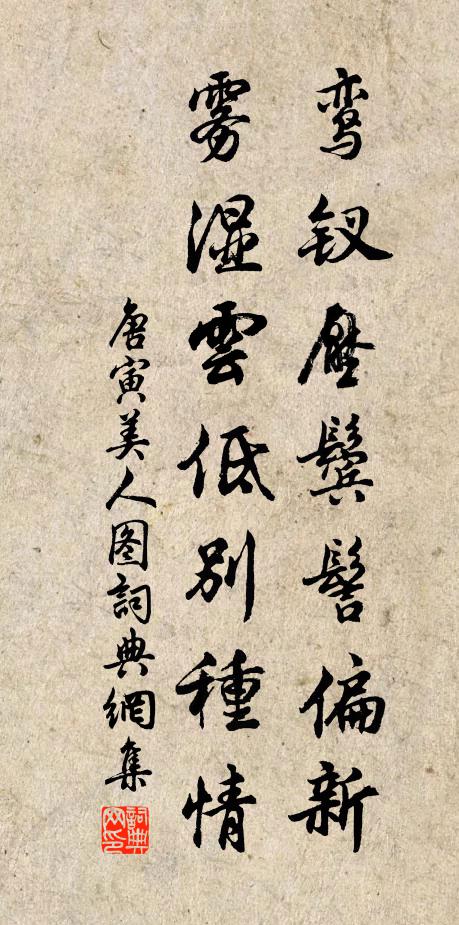 鸾钗压鬓髻偏新
雾湿雲低别種情
唐寅美人图詞典網集
詞典网印